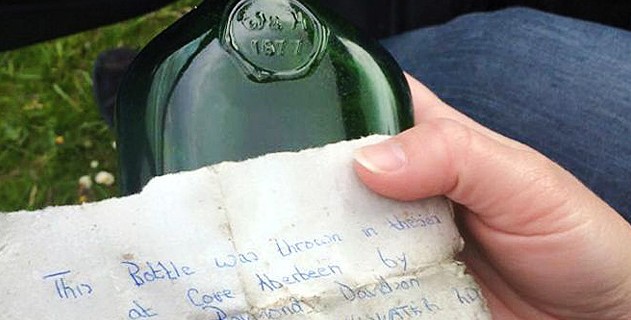 W & H
1877
This Bottle was thrown in thesea
at Cove Aberdeen by
Raymond Davidson